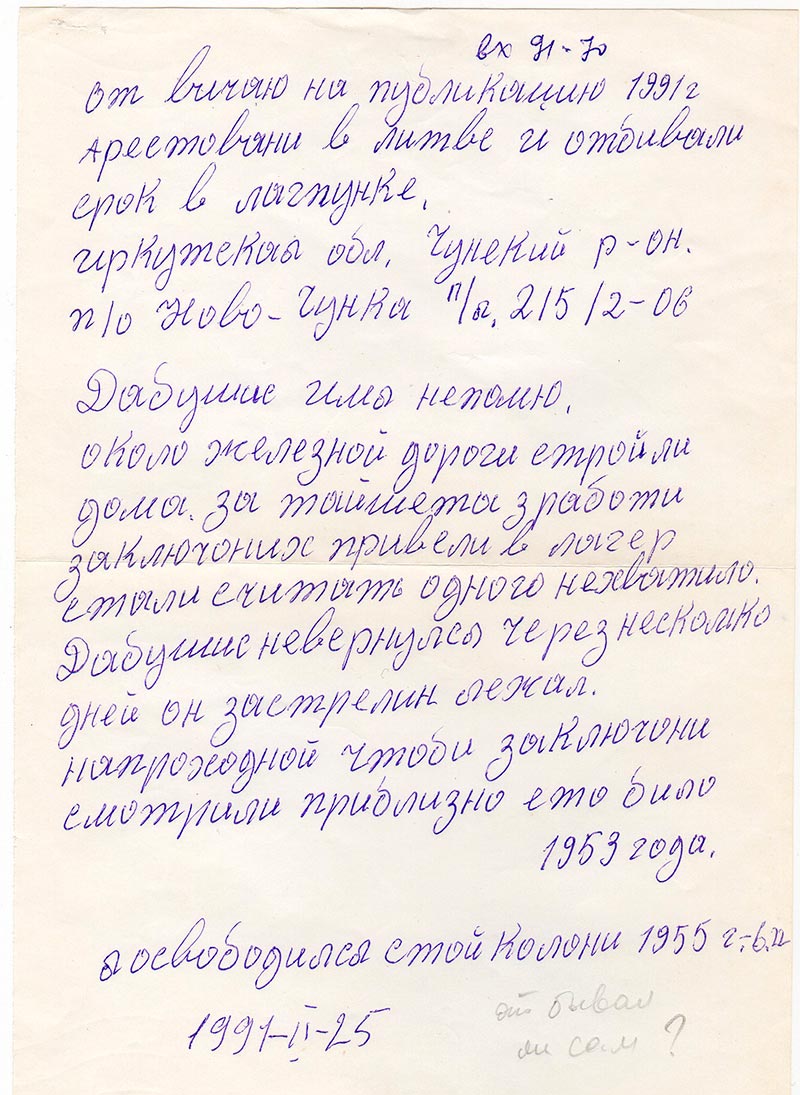 вх 91-70
от вичаю на публикацию 1991 г
Арестовани в литве и отбивали
срок в лагпунке,
иркутская обл. Чунский р-он.
п/о Ново-Чунка п/я, 215/2-06
Дабушис имя непомю,
около железной дороги стройли
дома. за тайшета з работи
заключоних привели в лагер
стали считать одного нехватило.
Дабушис невернулся через несколко
дней он застрелин лежал.
напроходной чтоби заключони
смотрили приблизно ето било
1953 года.
я освободился стой Колони 1955 г.
1991-II-25
отбывал
ли сам?